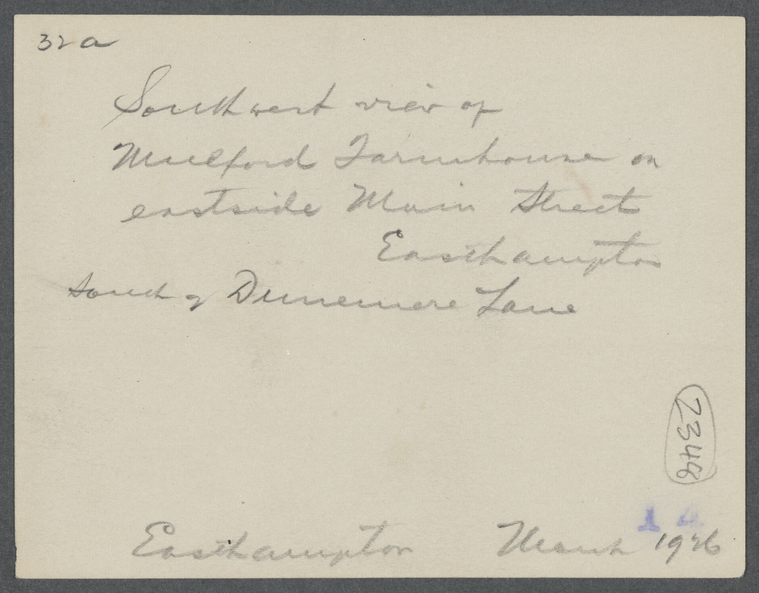 32a
Southwest view of
Mulford Farmhouse on
eastside Main Street
Easthampton
South of Dunemere Lane
2348
Easthampton March 1926